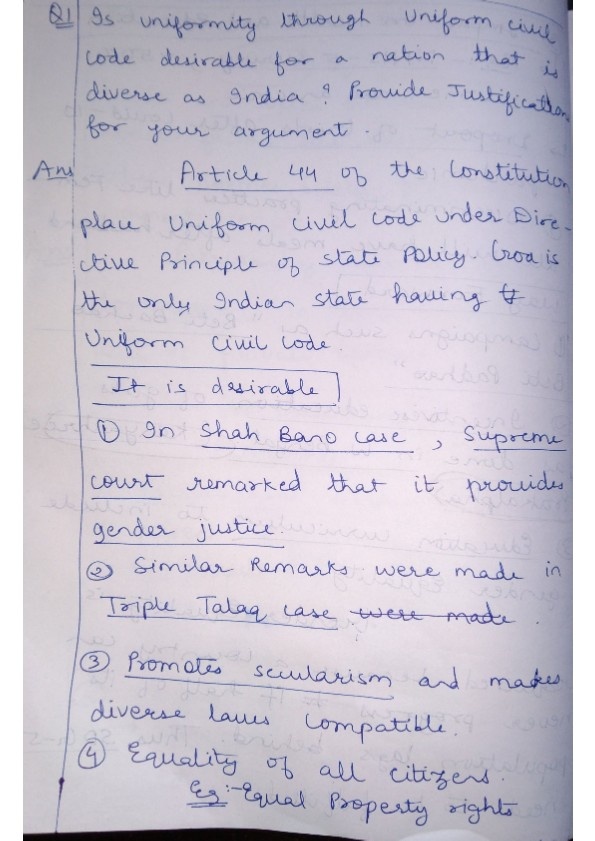 Q1 Is uniformity through Uniform civil
code desirable for a nation that is
diverse as India? Provide Justification
for your argument.
Ans Article 44 of the Constitution
place Uniform civil code under Dire-
ctive Principle of state Policy. Goa is
the only Indian state having
Uniform Civil Code.
It is desirable
① In Shah Bano case, Supreme
court remarked that it provides
gender justice.
② Similar Remarks were made in
Triple Talaq case were made.
③ Promotes secularism and makes
diverse laws compatible.
④ Equality of all citizens.
Eg:- Equal Property rights